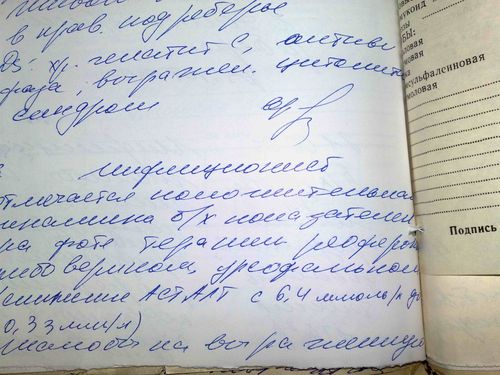 в прав. подреберье
Ds: хр. гепатит С, активн
фаза, выражен. цитолити
синдром
инфекционист
отмечается положительная
динамика б/х показателей
на фоне терапии реоферон
рибавирином, урсофальком
(снижение АСТ АЛТ с 6,4 ммоль/л до
0,33 ммл/л)
жалобы на выраженную
мукоид
БЫ:
овая
мовая
ка
сульфалеиновая
моловая
Подпись